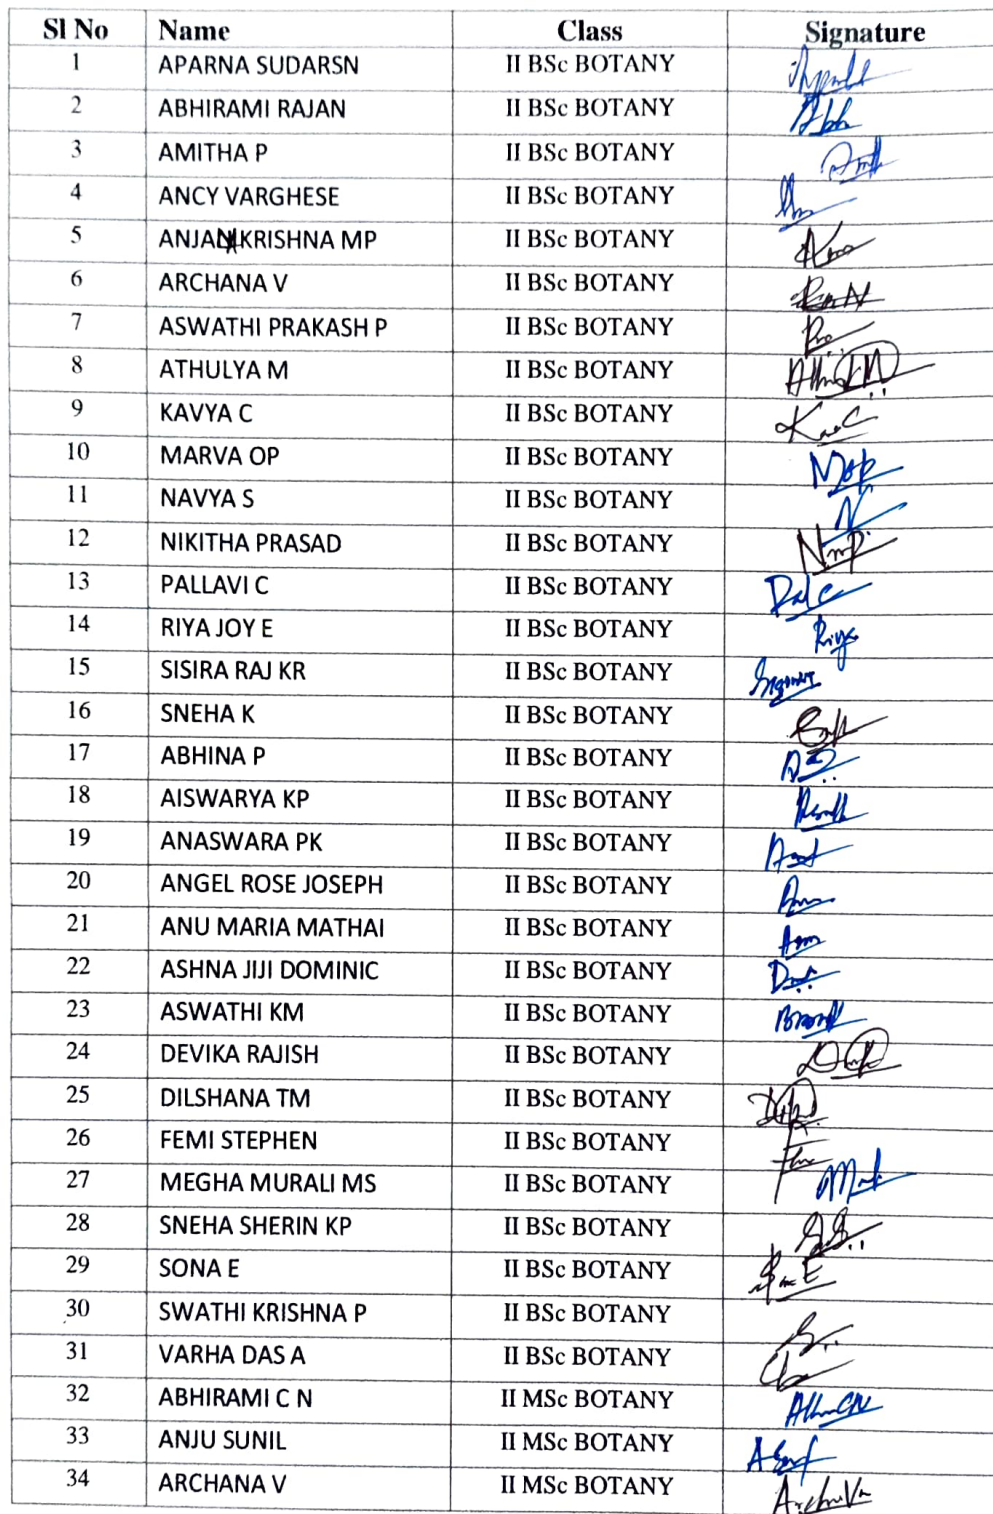 Sl No Name Class Signature
1 APARNA SUDARSN II BSc BOTANY
2 ABHIRAMI RAJAN II BSc BOTANY Abh
3 AMITHA P II BSc BOTANY
4 ANCY VARGHESE II BSc BOTANY
5 KRISHNA MP II BSc BOTANY
6 ARCHANA V II BSc BOTANY
7 ASWATHI PRAKASH P II BSc BOTANY
8 ATHULYA M II BSc BOTANY
9 KAVYA C II BSc BOTANY
10 MARVA OP II BSc BOTANY
11 NAVYA S II BSc BOTANY N
12 NIKITHA PRASAD II BSc BOTANY
13 PALLAVI C II BSc BOTANY
14 RIYA JOY E II BSc BOTANY Riya
15 SISIRA RAJ KR II BSc BOTANY
16 SNEHA K II BSc BOTANY
17 ABHINA P II BSc BOTANY
18 AISWARYA KP II BSc BOTANY
19 ANASWARA PK II BSc BOTANY
20 ANGEL ROSE JOSEPH II BSc BOTANY
21 ANU MARIA MATHAI II BSc BOTANY
22 ASHNA JIJI DOMINIC II BSc BOTANY
23 ASWATHI KM II BSc BOTANY
24 DEVIKA RAJISH II BSc BOTANY
25 DILSHANA TM II BSc BOTANY
26 FEMI STEPHEN II BSc BOTANY
27 MEGHA MURALI MS II BSc BOTANY
28 SNEHA SHERIN KP II BSc BOTANY
29 SONA E II BSc BOTANY
30 SWATHI KRISHNA P II BSc BOTANY
31 VARHA DAS A II BSc BOTANY
32 ABHIRAMI C N II MSc BOTANY
33 ANJU SUNIL II MSc BOTANY
34 ARCHANA V II MSc BOTANY